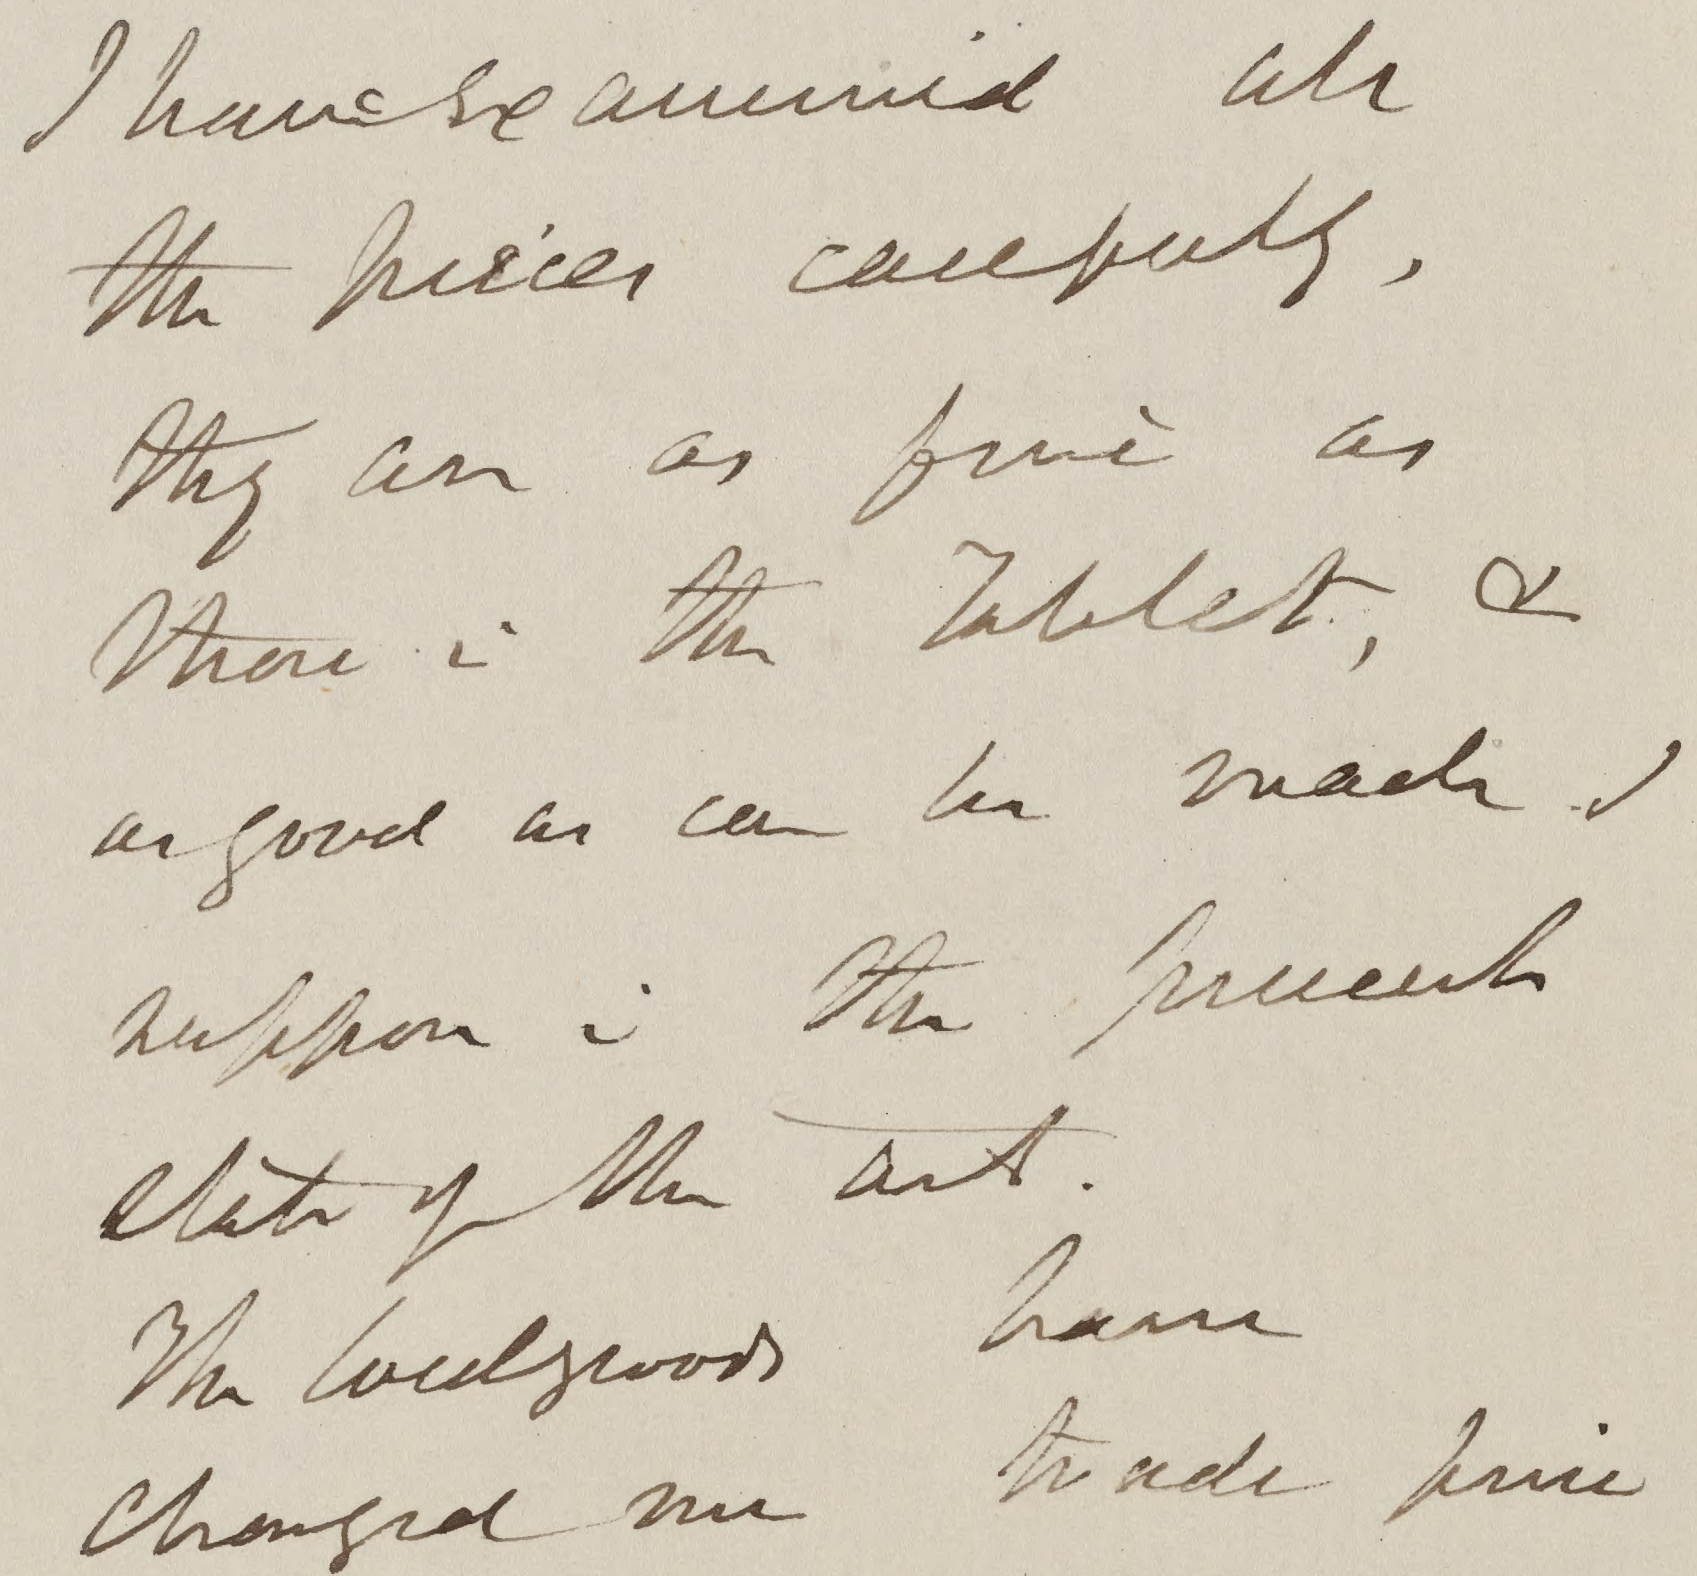 I have examined all
the pieces carefully,
they are as fine as
those in the Tablet, &
as good as can be made I
suppose in the present
state of the art.
The Wedgwoods have
charged me trade price